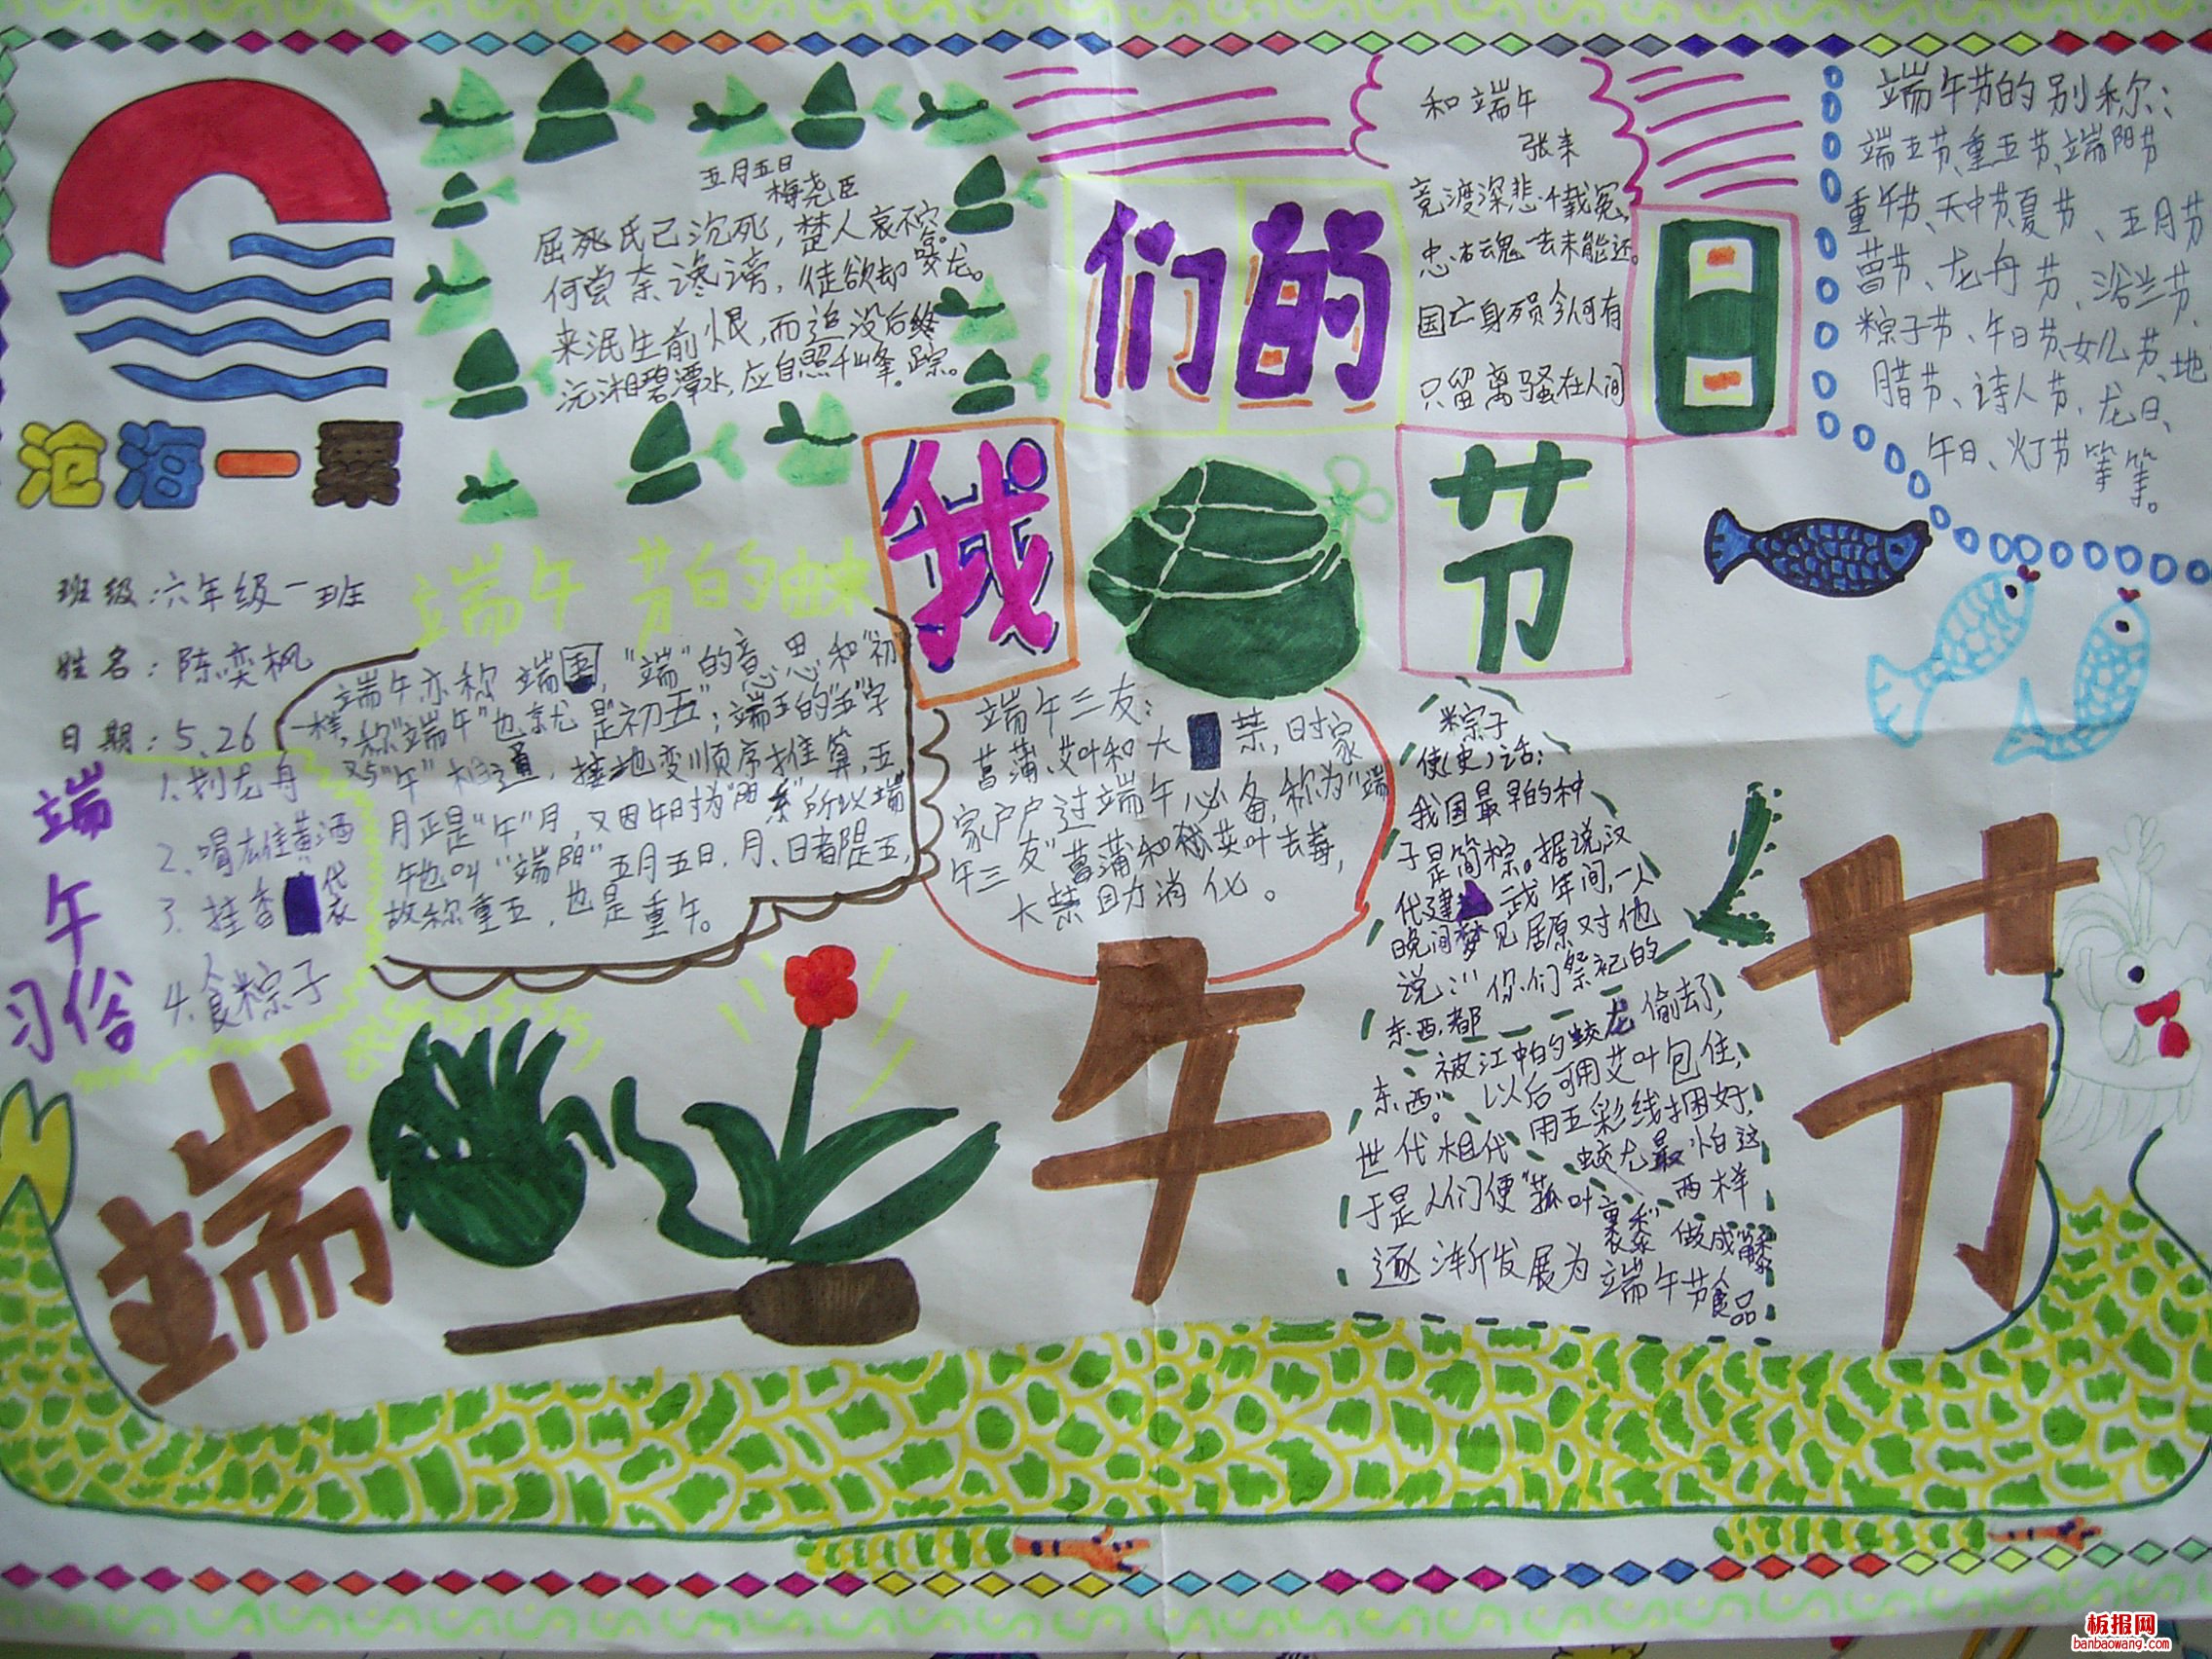 沧海一粟
班级:六年级一班
姓名:陈奕枫
日期:5、26
端午习俗
1.划龙舟
2、喝雄黄酒
3、挂香袋
4、食粽子
五月五日
梅尧臣
屈死氏已沉死,楚人哀不容。
何尝奈谗谤,徒欲却蛟龙。
来泯生前恨,而追没后踪。
沅湘碧潭水,应自照千峰。
端午节的由来
端午亦称端五,"端"的意思和"初"
一样,称"端午"也就是初五";端五的"五"字
又与"午"相通,按地支顺序推算,五
月正是"午"月,又因午时为"阳辰"所以端
午也叫"端阳"五月五日,月、日都是五,
故称重五,也是重午。
我们的日节
和端午
张耒
竞渡深悲千载冤,
忠魂一去未能还。
国亡身殒今何有
只留离骚在人间
端午节的别称:
端五节、重五节、端阳节
重午节、天中节、夏节、五月节
菖节、龙舟节、浴兰节、
粽子节、午日节、女儿节、地
腊节、诗人节、龙日、
午日、灯节等等。
端午三友:
菖蒲、艾叶和大
家户户过端午必备,称为"端
午三友"菖蒲和
助消化。
粽子
使(史)话:
我国最早的种
子是筒粽。据说汉
代建武年间,一人
晚间梦见屈原对他
说:"你们祭祀的
东西,都
被江中的蛟龙偷去了,
以后可用艾叶包住,
东西"。
用五彩线捆好,
世代相代
蛟龙最怕这
两样
于是人们便"菰叶裹黍"做成
逐渐发展为端午节食品
端午节
板报网
banbaowang.com